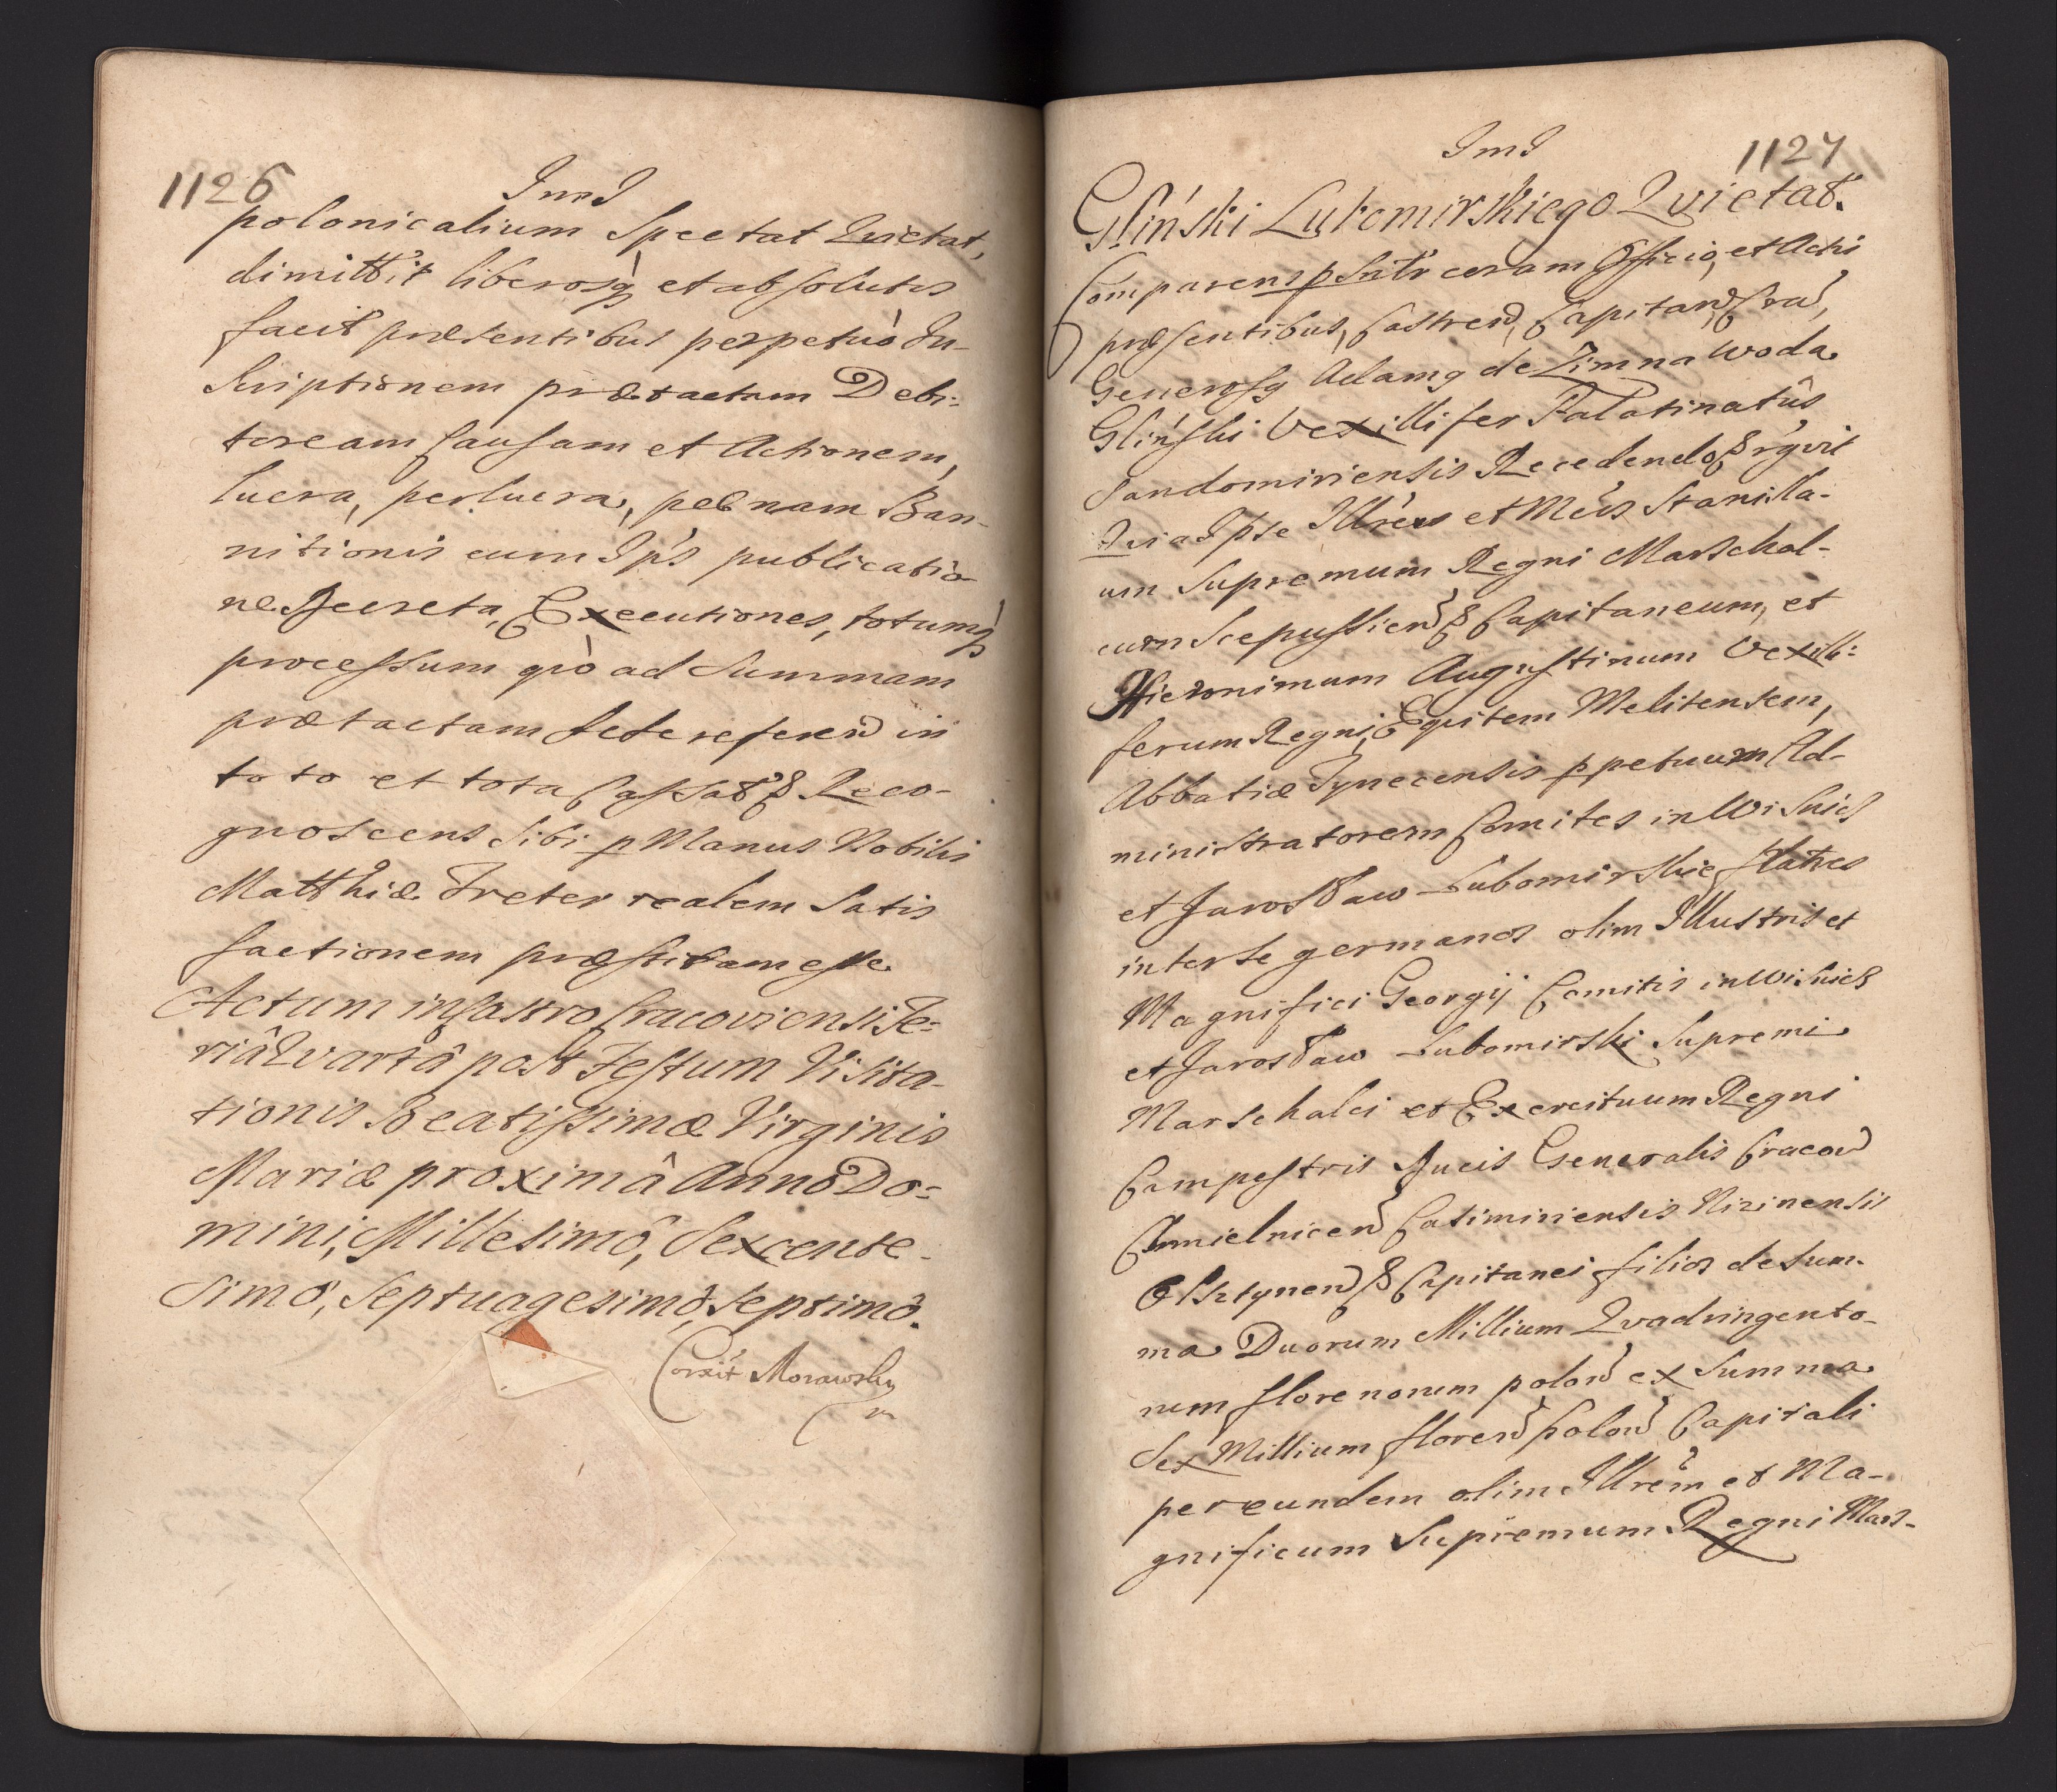 1126
JmJ
polonicalium Spectat Quietat,
dimittit liberosq́ et absolutos
facit præsentibus perpetuò In-
scriptionem prætactam Debi:
toream Causam et Actionem,
lucra, perlucra, pœnam Ban-
nitionis cum Ips publicatio
ne Decreta, Executiones, totumq́
processum qò ad Summam
prætactam sese referen in
toto et tota Cassat & Reco-
gnoscens sibi p Manus Nobilis
Matthiæ Treter realem Satis
factionem præstitam esse
Actum in Castro Cracoviensi Fe:
riâ Qvartâ post Festum Visita-
tionis Beatissimæ Virginis
Mariæ proximâ Annô Do:
mini, Millesimô, Sexcente-
simô, Septuagesimô, Septimô.
Corxit Morawsky
m
1127
JmJ
Gliński Lubomirskiego Qvietat.
Comparens psnltr coram Officio, et Actis
præsentibus, Castren, Capitan, Cra,
Generosq Adamq de Zimna woda
Gliński Vexillifer Palatinatûs
Sandomiriensis Recedendo & rgvit
Qvia Ipse Illres et Mcos Stanisla-
um Supremum Regni Marschal-
cum Scepussien & Capitaneum, et
Hieronimum Augustinum Vexilli:
ferum Regni, Eqvitem Melitensem,
Abbatiæ Tynecensis ppetuum Ad-
ministratorem Comites in Wisnicz
et Jarosław Lubomirskie fratres
inter se germanos olim Illustris et
Magnifici Georgij Comitis in Wisnicz
et Jarosław Lubomirski Supremi
Marschalci et Exercituum Regni
Campestris Ducis Generalis Cracov
Chmielnicen Casimiriensis Nizinensis
Olsztynen & Capitanei filios de Sum-
ma Duorum Millium Qvadringento-
rum florenorum polon ex Summa
Sex Millium floren polon Capitali
per eundem olim Illrem et Ma-
gnificum Supremum Regni Mars-